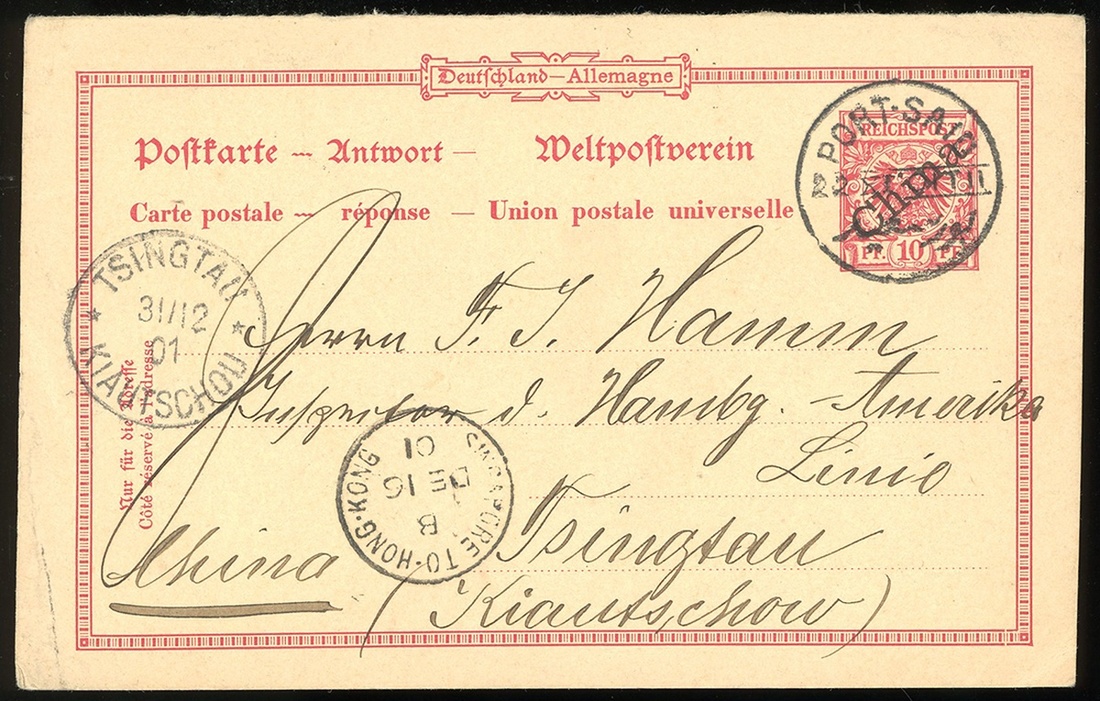 Deutschland—Allemagne
Postkarte — Antwort — Weltpostverein
Carte postale — réponse — Union postale universelle
PORT-SAID
REICHSPOST
China
10 PF.
TSINGTAU
31/12
01
KIAUTSCHOU
Nur für die Adresse
Côté réservé à l'adresse
Herrn F. J. Hamm
Inspector d. Hambg. - Amerika
Linie
SINGAPORE TO HONG-KONG
B
DE 16
01
Tsingtau
(Kiautschow)
China